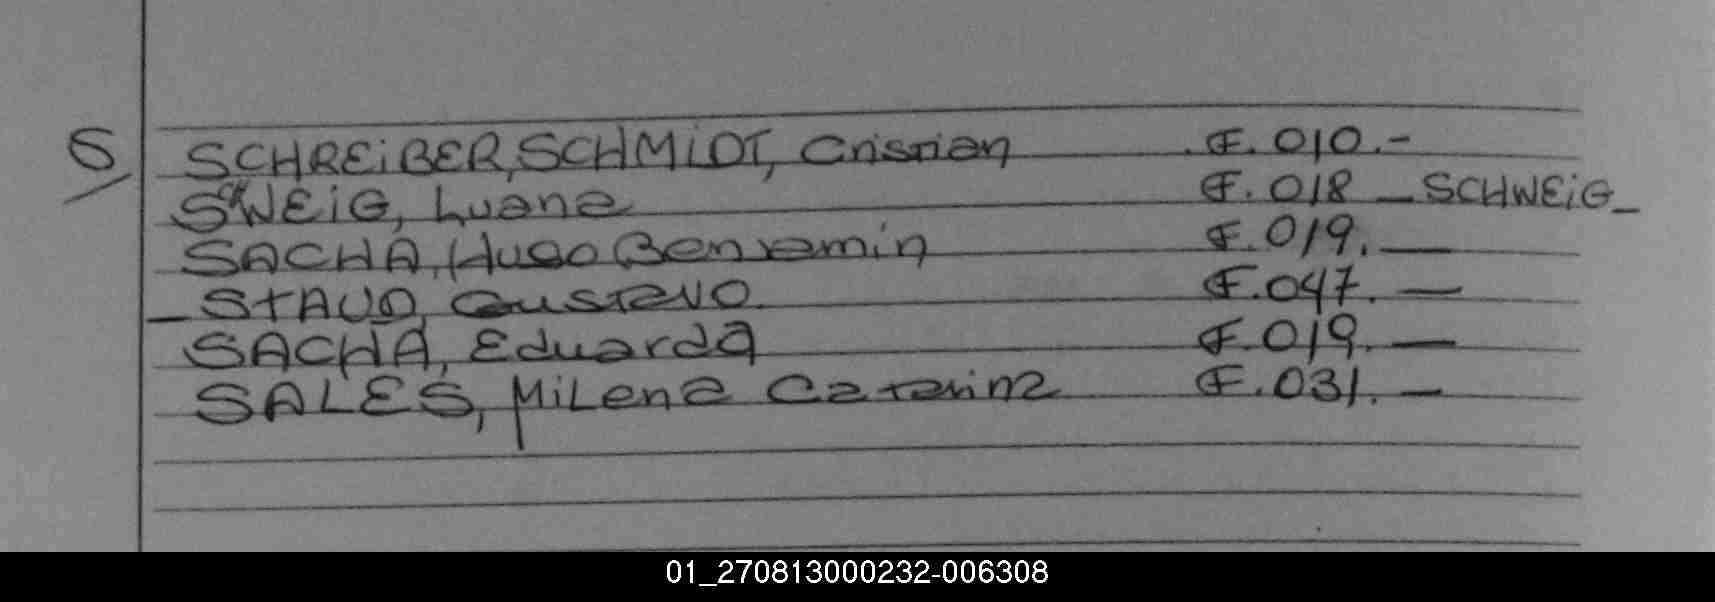 S
SCHREiBER, SCHMiDT, Cristian F. 010.-
SchWEiG, Luana F. 018 - SCHWEiG -
SACHA, Hugo Benjamin F. 019. -
- StAUD, Gustavo F. 047. -
SACHA, Eduarda F. 019. -
SALES, MiLena Catarina F. 031. -
01_270813000232-006308